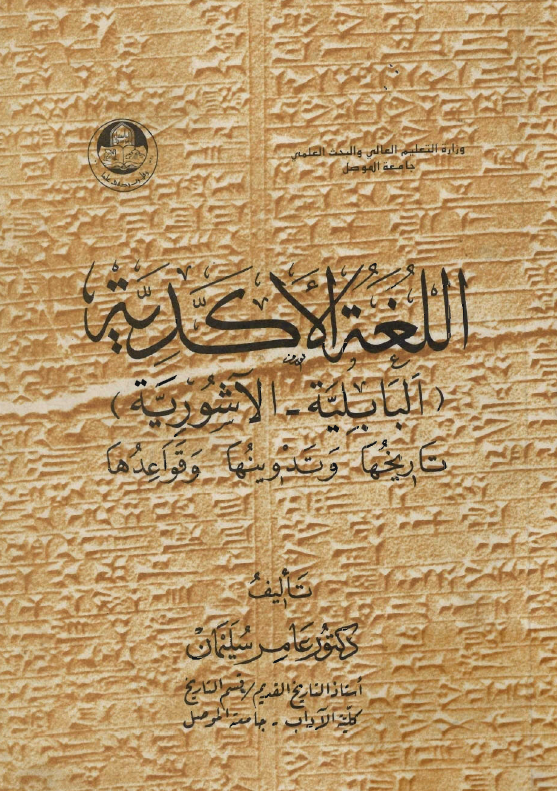 وزارة التعليم العالي والبحث العلمي
جامعة الموصل
اللُّغَةُ الأَكَدِّيَّةُ
(اَلبَابِلِيَّة - الآشُورِيَّة)
تَارِيخُهَا وَتَدْوِينُهَا وَقَوَاعِدُهَا
تَأليفُ
دكتور عَامِر سُلَيْمَان
أستاذ التاريخ القديم / قسم التاريخ
كلية الآداب - جامعة الموصل